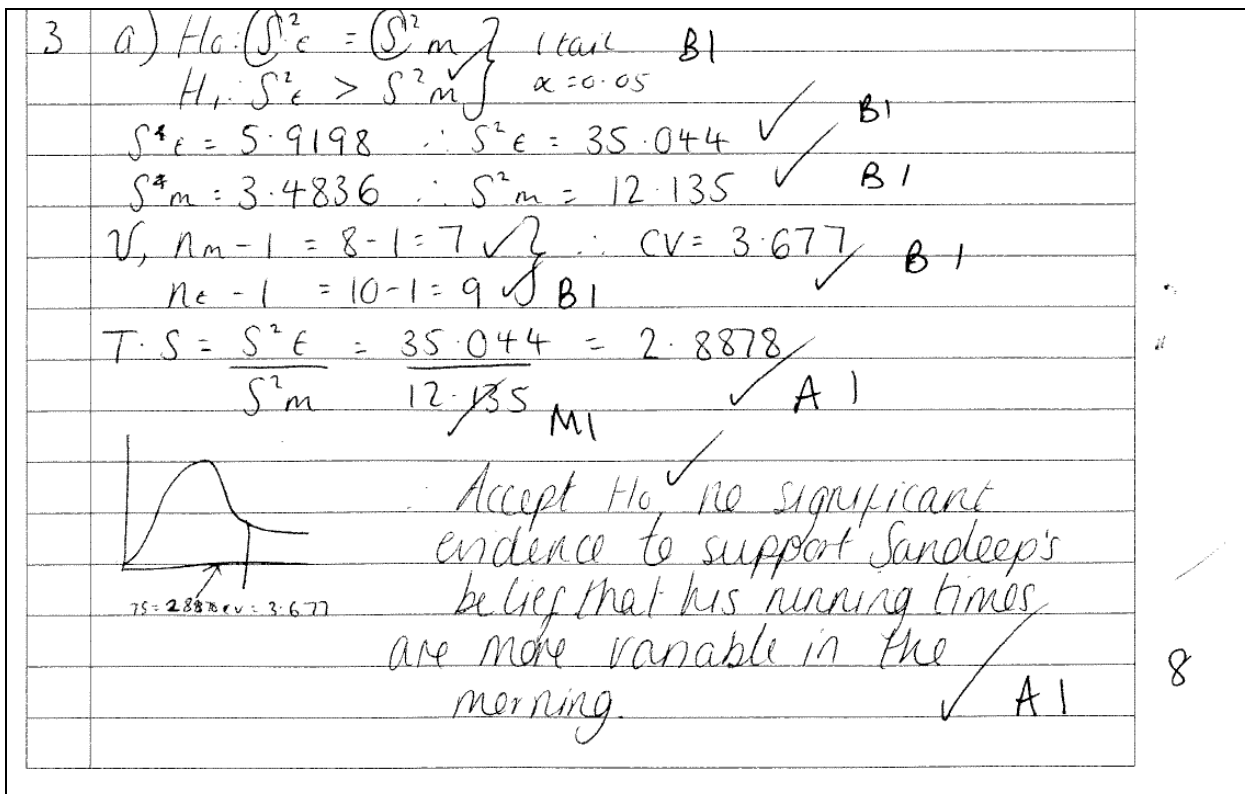 3 a) H₀: S²ε = S²m } 1 tail B1
H₁: S²ε > S²m } α = 0.05
Sε = 5.9198 ∴ S²ε = 35.044 ✓ B1
Sm = 3.4836 ∴ S²m = 12.135 ✓ B1
V, nm - 1 = 8-1 = 7 ✓ } ∴ CV = 3.677 ✓ B1
nε - 1 = 10-1 = 9 ✓ B1
T.S = S²ε / S²m = 35.044 / 12.135 = 2.8878 ✓ M1 A1
∴ Accept H₀ ✓ no significant
evidence to support Sandeep's
TS = 2.8878 CV = 3.677 belief that his running times
are more variable in the
morning. ✓ A1
8